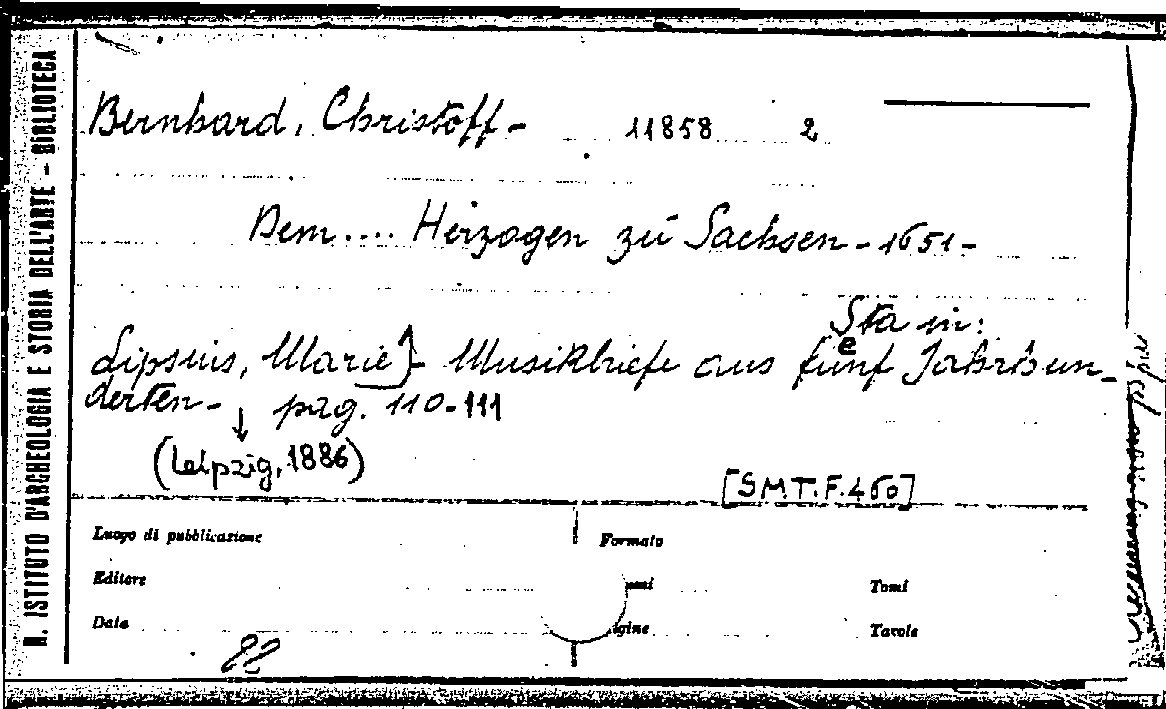 R. ISTITUTO D'ARCHEOLOGIA E STORIA DELL'ARTE - BIBLIOTECA
Bernhard, Christoff - 11858 2
Dem.... Herzogen zu Sachsen - 1651 -
Sta in:
Lipsius, Marie}- Musikbriefe aus fünf Jahrhun-
derten - pag. 110-111
(Leipzig, 1886)
[S.M.T.F. 460]
Luogo di pubblicazione
Formato
Editore
Tomi
Data
Tavole
22